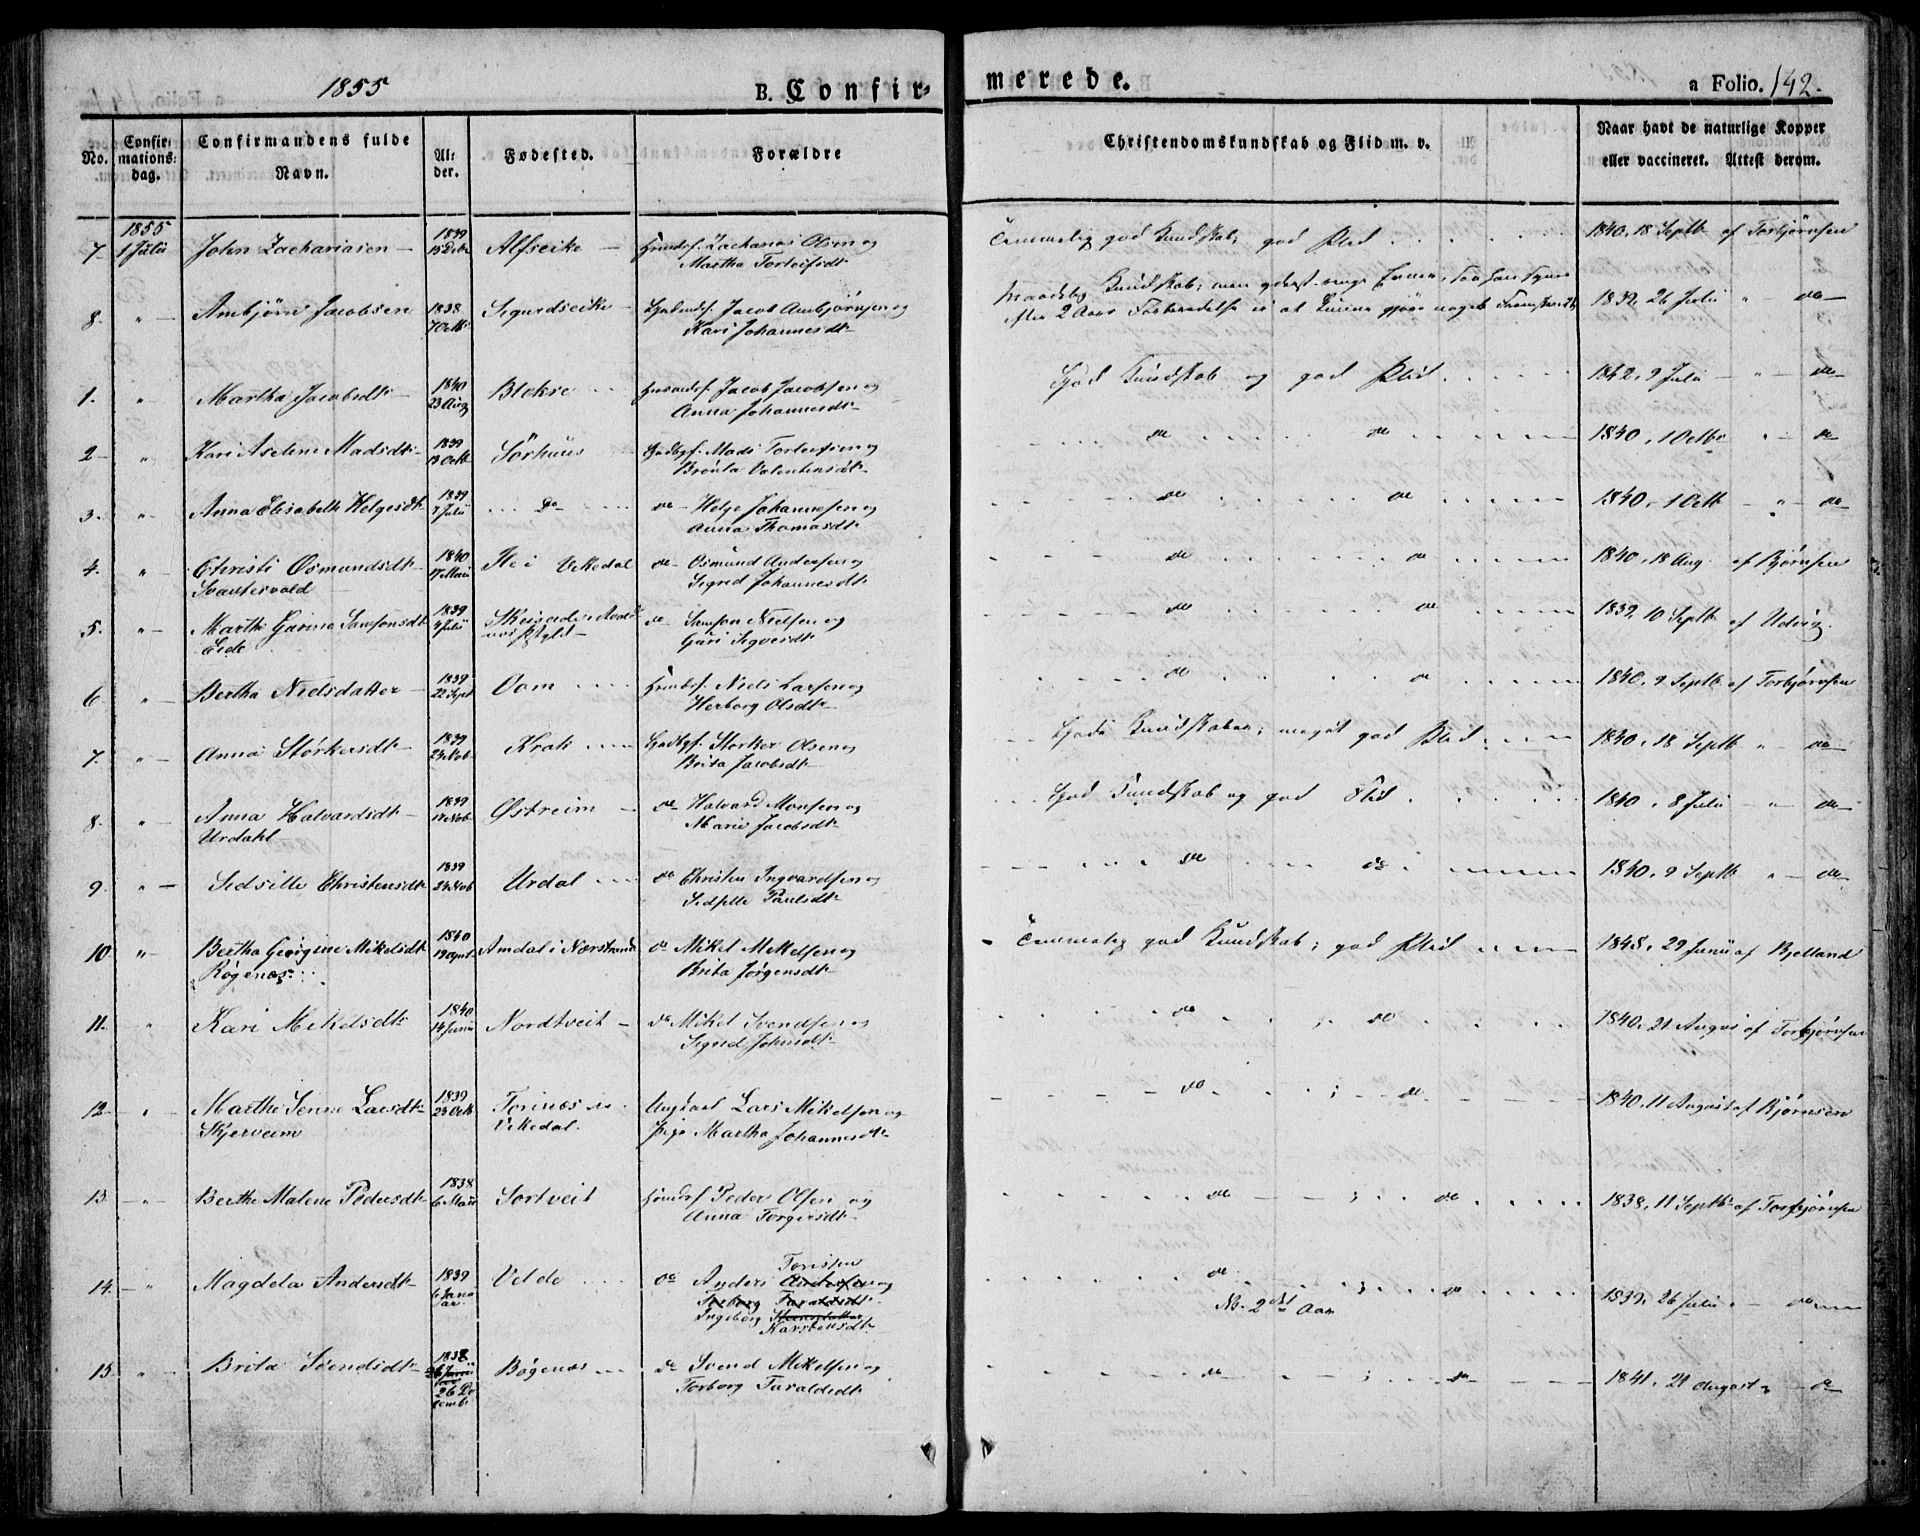 1855
B. Confir-
merede.
a Folio. 142.
No.
Confir-
mations-
dag.
Confirmandens fulde
Navn.
Al-
der.
Fødested.
Forældre
Christendomskundskab og Flid m. v.
Naar havt de naturlige Kopper
eller vaccineret. Attest derom.
1855
7. 1 Juli John Zachariasen 1839 15 Decbr Alfseike Zacharias Olsen og
Martha Torleifsdt
Temmelig god Kundskab; god Flid 1840, 18 Septb af Torbjørnsen
8. " Ambjørn Jacobsen 1838 7 Octb Sigurdseike Jacob Ambjørnsen og
Kari Johannesdt
Maadelig Kundskab; men yderst ringe Evner,
efter 2 Aars Forberedelse ei at kunne gjøre noget Fremskridt
1839, 26 Juli " do
1. " Martha Jacobsdt 1840 23 Aug Blekse Jacob Jacobsen og
Anna Johannesdt
God Kundskab og god Flid 1842, 9 Juli " do
2. " Kari Aselene Madsdt 1839 13 Octb Sørhuus Gaardbgf. Mads Torleifsen og
Brønta Valentinsdt
do do 1840, 1 Octbr " do
3. " Anna Elisabeth Helgesdt 1839 7 Juli Do do Helge Johannesen og
Anna Thomasdt
do do 1840, 1 Octb " do
4. " Christi Osmundsdt 1840 17 Mai Hei Vikedal do Osmund Andersen og
Svartevold
Sigrid Johannesdt
do do 1840, 18 Aug. af Bjørnsen
5. " Marthe Gurina Samsonsdt 1839 4 Juli do Samson Nielsen og
Eide
Guri Sigversdt
do do 1839, 10 Septb af Udvig
6. " Bertha Nielsdatter 1839 22 Sept Oom Niels Larsen og
Herborg Olsdt
do do 1840, 9 Septb af Torbjørnsen
7. " Anna Størkersdt 1839 23 Nob Krak Gaardbgf. Størker Olsen og
Brita Jacobsdt
Gode Kundskaber; meget god Flid 1840, 18 Septb " do
8. " Anna Halvardsdt 1839 17 Nob Østreim do Halvard Monsen og
Urdahl
Marie Jacobsdt
God Kundskab og god Flid 1840, 8 Juli " do
9. " Sedsille Christensdt 1839 24 Nob Urdal do Christen Ingvardsen og
Sedselle Paulsdt
do do 1840, 9 Septb " do
10. " Bertha Georgine Mikelsdt 1840 19 April Amdal i Nærstrand do Mikel Mikelsen og
Røgenæs
Brita Jørgensdt
Temmelig god Kundskab; god Flid 1848, 29 Juni af Bjelland
11. " Kari Mikelsdt 1840 14 Juni Nordtveit do Mikel Svendsen og
Sigrid Johnsdt
do ; do 1840, 21 Augus af Torbjørnsen
12. " Marthe Serine Larsdt 1839 23 Octb Torinæs i Ungkarl Lars Mikelsen og
Skjerveim
Vikedal.
Pige Martha Johannesdt
do ; do 1840, 11 August af Bjørnsen
13. " Berthe Malene Pedersdt 1838 6 Mai Sortveit Peder Olsen og
Anna Torgersdt
do ; do 1838, 11 Septb af Torbjørnsen
14. " Magdela Andersdt 1839 6 Janu ar. Velde do Anders Andersen og
Torisen
Torborg Taraldsdt
Ingeborg
Karstensdt
do ; do
No. 2det Aar
1839, 26 Juli " do
15. " Brita Svendsdt 1838 26 De cemb Bøgenæs do Svend Mikelsen og
Torborg Taraldsdt
do ; do 1841, 21 August " do